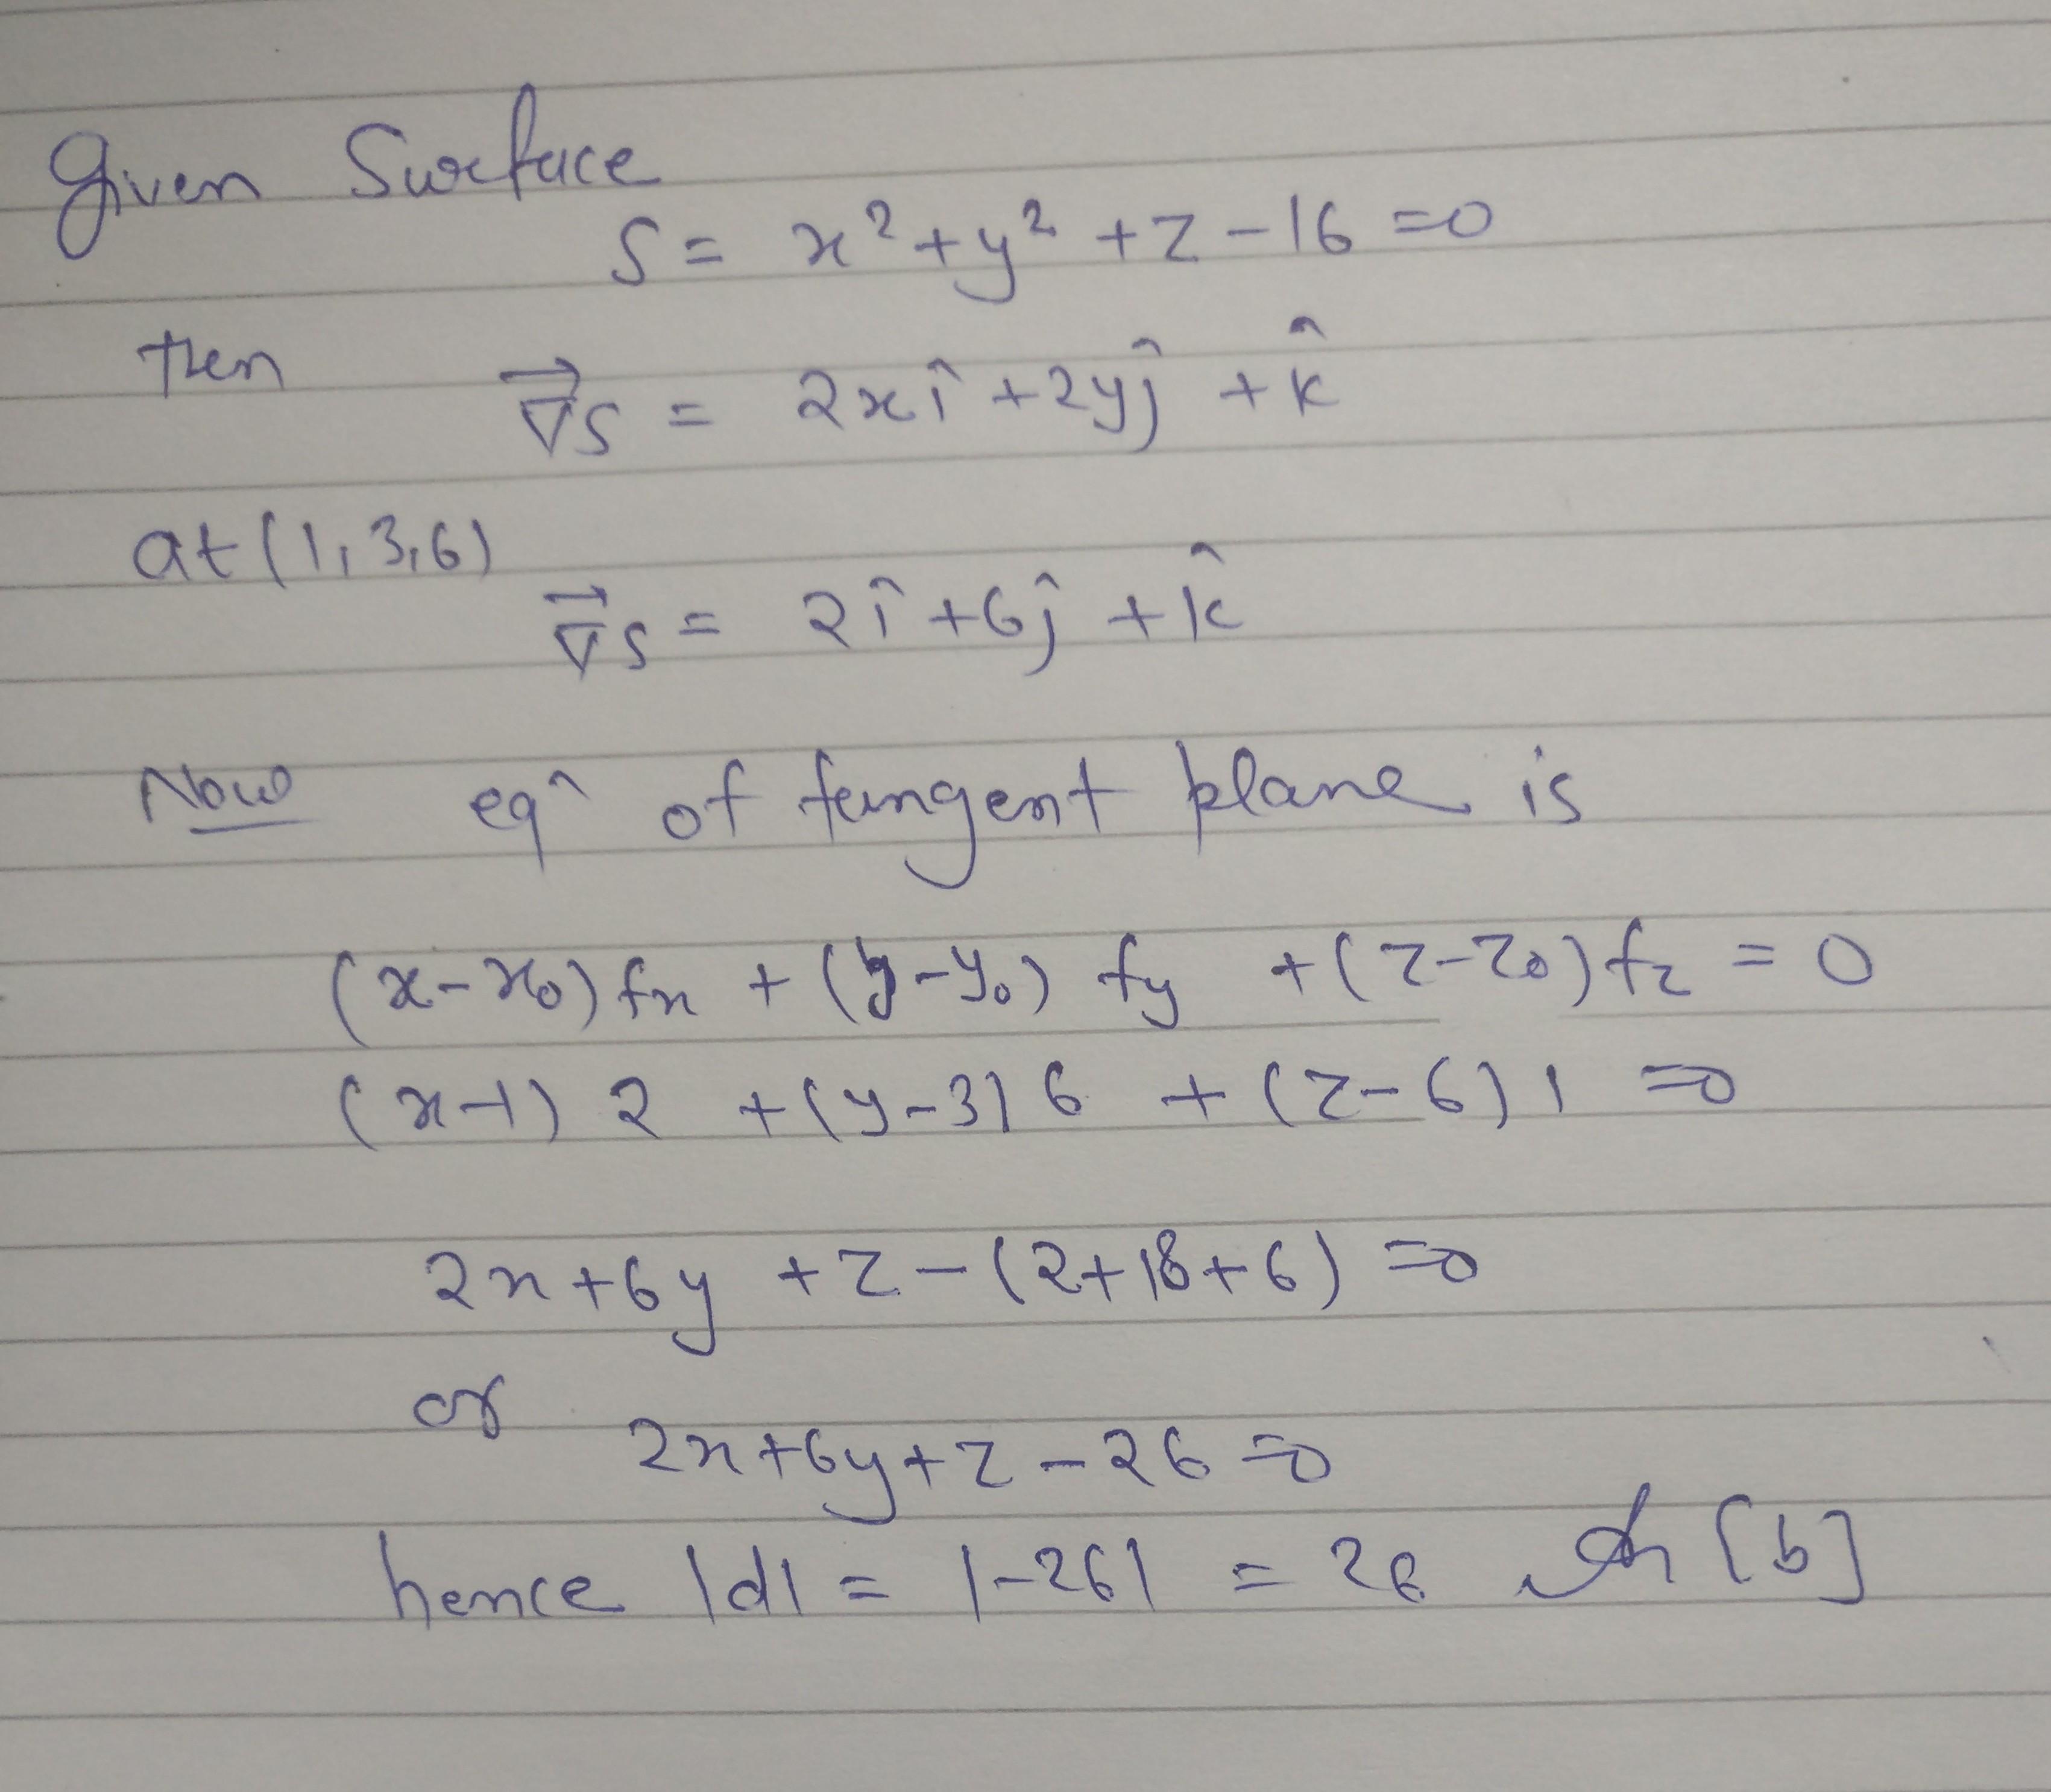 Given Surface
S = x² + y² + z - 16 = 0
then
∇⃗S = 2xî + 2yĵ + k̂
at (1, 3, 6)
∇⃗S = 2î + 6ĵ + k̂
Now eqⁿ of tangent plane is
(x - x₀) fx + (y - y₀) fy + (z - z₀) fz = 0
(x - 1) 2 + (y - 3) 6 + (z - 6) 1 = 0
2x + 6y + z - (2 + 18 + 6) = 0
or
2x + 6y + z - 26 = 0
hence |d| = |-26| = 26 [b]